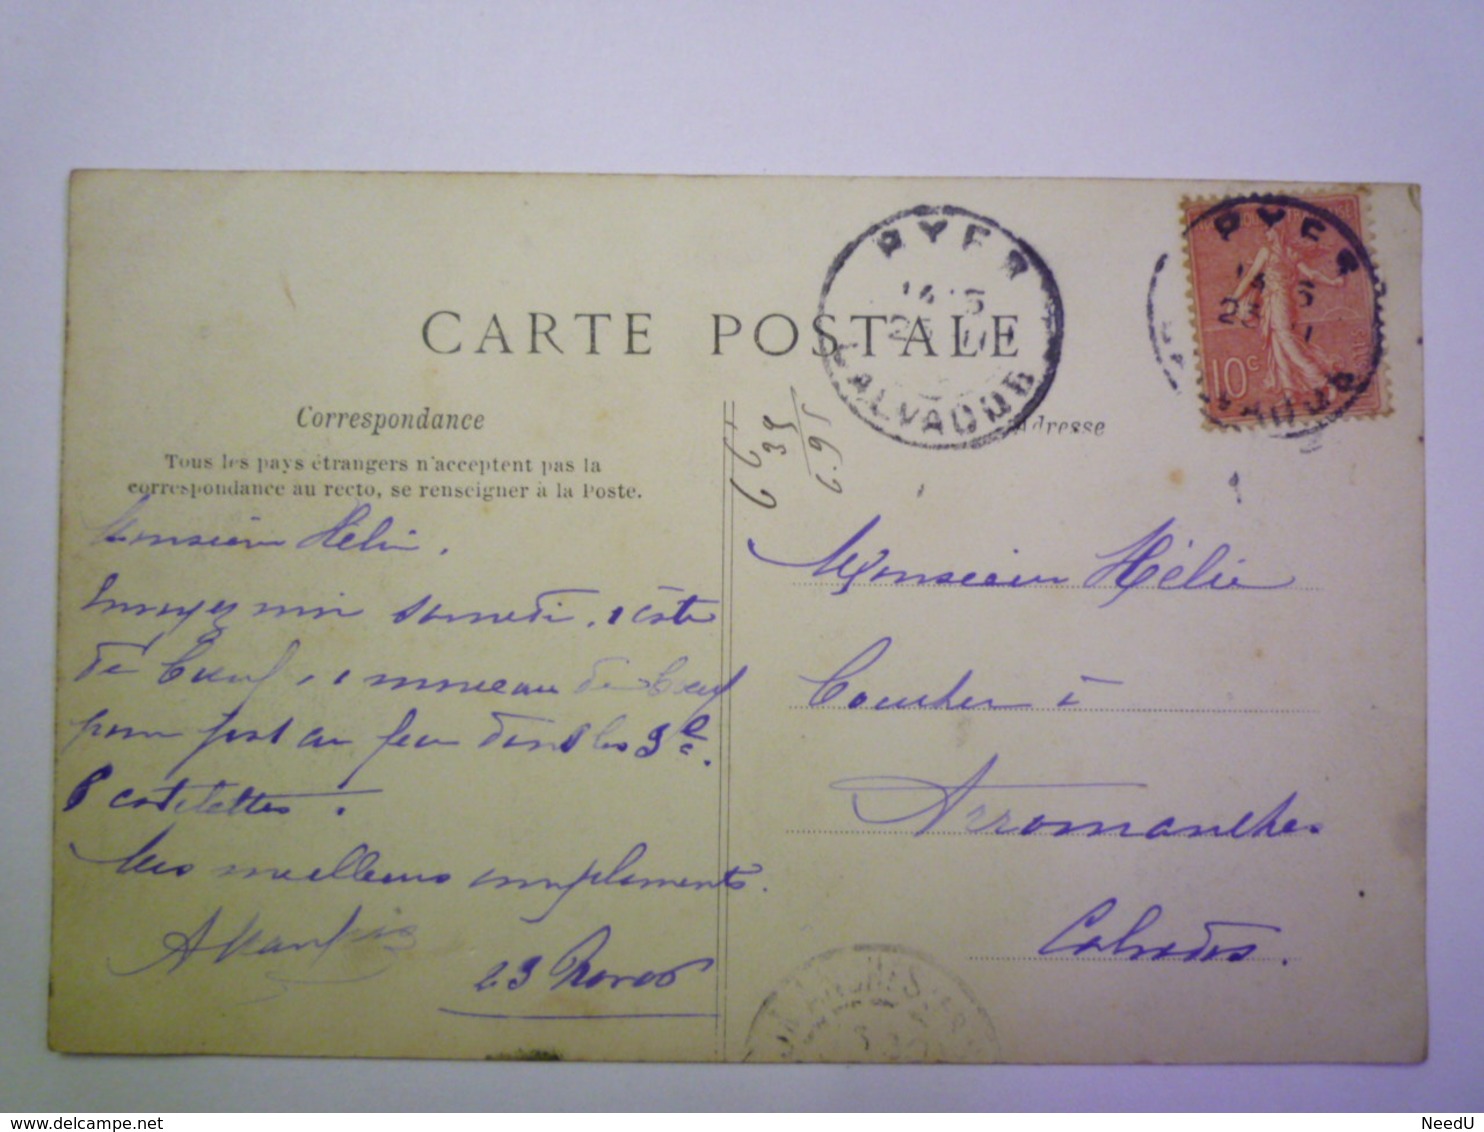 CARTE POSTALE
Correspondance
Tous les pays étrangers n'acceptent pas la
correspondance au recto, se renseigner à la Poste.
Adresse
RYES
CALVADOS
10c
6 6
39
6.95
Monsieur Hélie.
Envoyez moi samedi. 1 côte
de bœuf, 1 morceau de bœuf
pour pot au feu dans les 3
8 cotelettes.
Mes meilleurs compliments.
23 Nov 06
Monsieur Hélie
Boucher à
Arromanches
Calvados.
NeedU